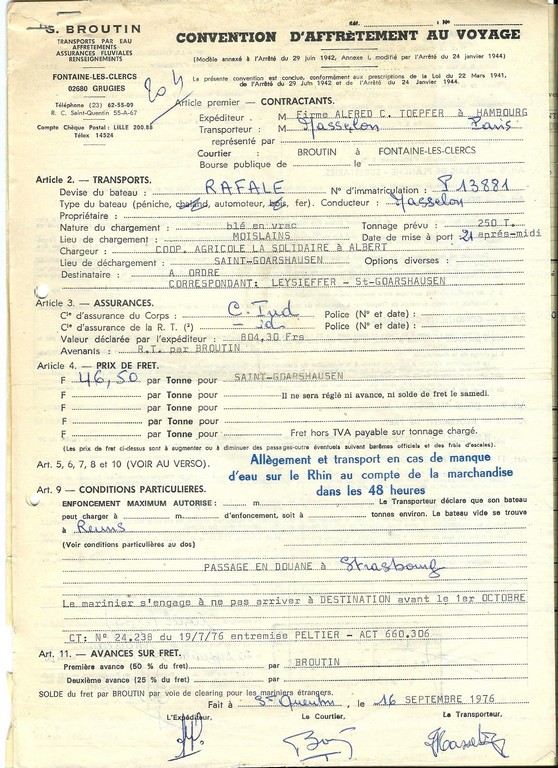 S. BROUTIN
TRANSPORTS PAR EAU
AFFRETEMENTS
ASSURANCES FLUVIALES
RENSEIGNEMENTS
FONTAINE-LES-CLERCS
02680 GRUGIES
Téléphone (23) 62-55-09
R. C. Saint-Quentin 55-A-67
Compte Chèque Postal : LILLE 200.88
Télex 14524
Réf. N°
CONVENTION D'AFFRÈTEMENT AU VOYAGE
(Modèle annexé à l'Arrêté du 29 juin 1942, Annexe I, modifié par l'Arrêté du 24 janvier 1944)
La présente convention est conclue, conformément aux prescriptions de la Loi du 22 Mars 1941,
de l'Arrêté du 29 Juin 1942 et de l'Arrêté du 24 Janvier 1944.
Article premier — CONTRACTANTS.
Expéditeur : M Firme ALFRED C. TOEPFER à HAMBOURG
Transporteur : M Masselon Paris
représenté par
Courtier : BROUTIN à FONTAINE-LES-CLERCS
Bourse publique de le
Article 2. — TRANSPORTS.
Devise du bateau : RAFALE N° d'immatriculation : P 13881
Type du bateau (péniche, chaland, automoteur, bois, fer). Conducteur : Masselon
Propriétaire :
Nature du chargement : blé en vrac Tonnage prévu : 250 T.
Lieu de chargement : MOISLAINS Date de mise à port : 21 après-midi
Chargeur : COOP. AGRICOLE LA SOLIDAIRE à ALBERT
Lieu de déchargement : SAINT-GOARSHAUSEN Options diverses :
Destinataire : A ORDRE
CORRESPONDANT: LEYSIEFFER - St-GOARSHAUSEN
Article 3. — ASSURANCES.
Cie d'assurance du Corps : C. Ind Police (N° et date) :
Cie d'assurance de la R. T. (²) — id Police (N° et date) :
Valeur déclarée par l'expéditeur : 804,30 Frs
Avenants : R.T. par BROUTIN
Article 4. — PRIX DE FRET.
F 46,50 par Tonne pour SAINT-GOARSHAUSEN
F par Tonne pour Il ne sera réglé ni avance, ni solde de fret le samedi.
F par Tonne pour
F par Tonne pour
F par Tonne pour Fret hors TVA payable sur tonnage chargé.
(Les prix de fret ci-dessus sont à augmenter ou à diminuer des passages-outre éventuels suivant barèmes officiels et des frais d'escales).
Art. 5, 6, 7, 8 et 10 (VOIR AU VERSO).
Allègement et transport en cas de manque
d'eau sur le Rhin au compte de la marchandise
dans les 48 heures
Art. 9 — CONDITIONS PARTICULIERES.
ENFONCEMENT MAXIMUM AUTORISE : m Le Transporteur déclare que son bateau
peut charger à m d'enfoncement, soit à tonnes environ. Le bateau vide se trouve
à Reims
(Voir conditions particulières au dos)
PASSAGE EN DOUANE à Strasbourg
Le marinier s'engage à ne pas arriver à DESTINATION avant le 1er OCTOBRE
CT: N° 24.238 du 19/7/76 entremise PELTIER - ACT 660.306
Art. 11. — AVANCES SUR FRET.
Première avance (50 % du fret) par BROUTIN
Deuxième avance (25 % du fret) par
SOLDE du fret par BROUTIN par voie de clearing pour les mariniers étrangers.
Fait à St Quentin, le 16 SEPTEMBRE 1976
L'Expéditeur. Le Courtier. Le Transporteur.